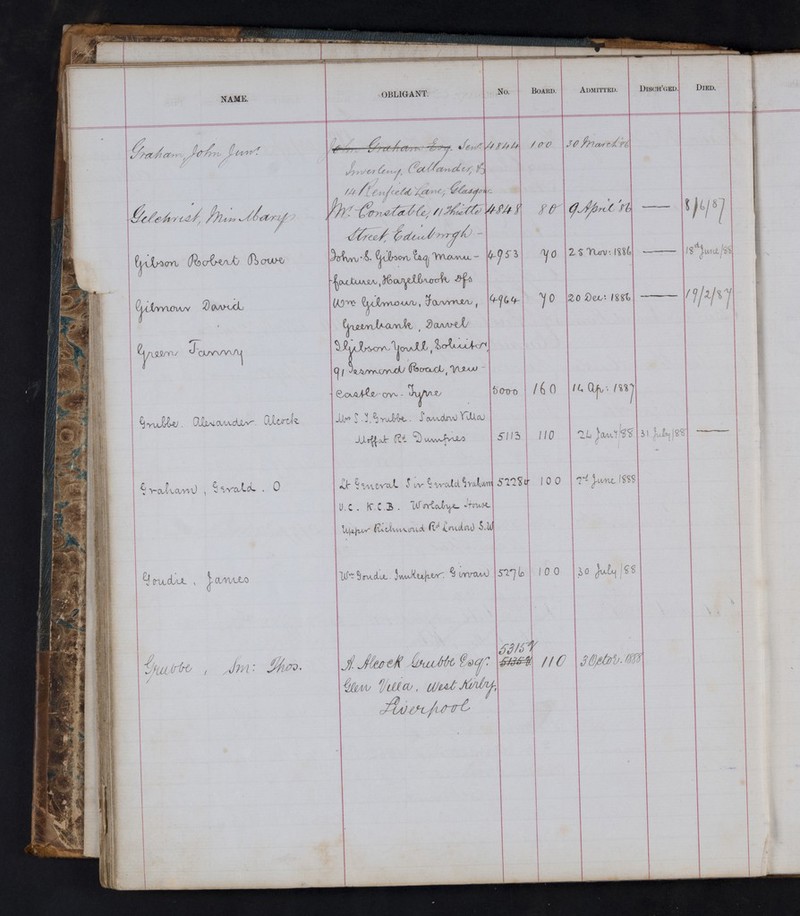 NAME. OBLIGANT. No. BOARD. ADMITTED. DISCH'GED. DIED.
Graham, John Junr. John Graham Esq. Senr 4844 100 30 March
Callander, &
14 Renfield Lane, Glasgow
Gilchrist, Miss Mary Constable, 11 Thistle 4848 80 9 April '86 — 8/6/87
Street, Edinburgh -
Gibson Robert Bowe John S. Gibson Esq Manu- 4953 70 25 Nov: 1886 — 18th June/88
facturer, Hazelbrook
Gilmour David Wm Gilmour, Farmer, 4964 70 20 Dec: 1886 — 19/2/87
Greenbank, Darvel
Green Fanny Gibson Youll, Solicitor,
91 Jesmond Road, New-
castle-on-Tyne 5000 160 14 Ap: 1887
Grubbe. Alexander Alcock Grubbe. Sandon Villa
Moffat Rd Dumfries 5113 110 24 Jany/88 31 July/88 —
Graham, Gerald. O Lt General Sir Gerald Graham 5228 100 2d June 1888
V.C. K.C.B. Worlabye House
Upper Richmond Rd London S.W
Goudie, James Wm Goudie. Innkeeper, Girvan 5276 100 30 July/88
5315
Grubbe, Thos. A. Alcock Grubbe Esqr. 110 3 Octor. 1888
Glen Villa. West Kirby,
Liverpool